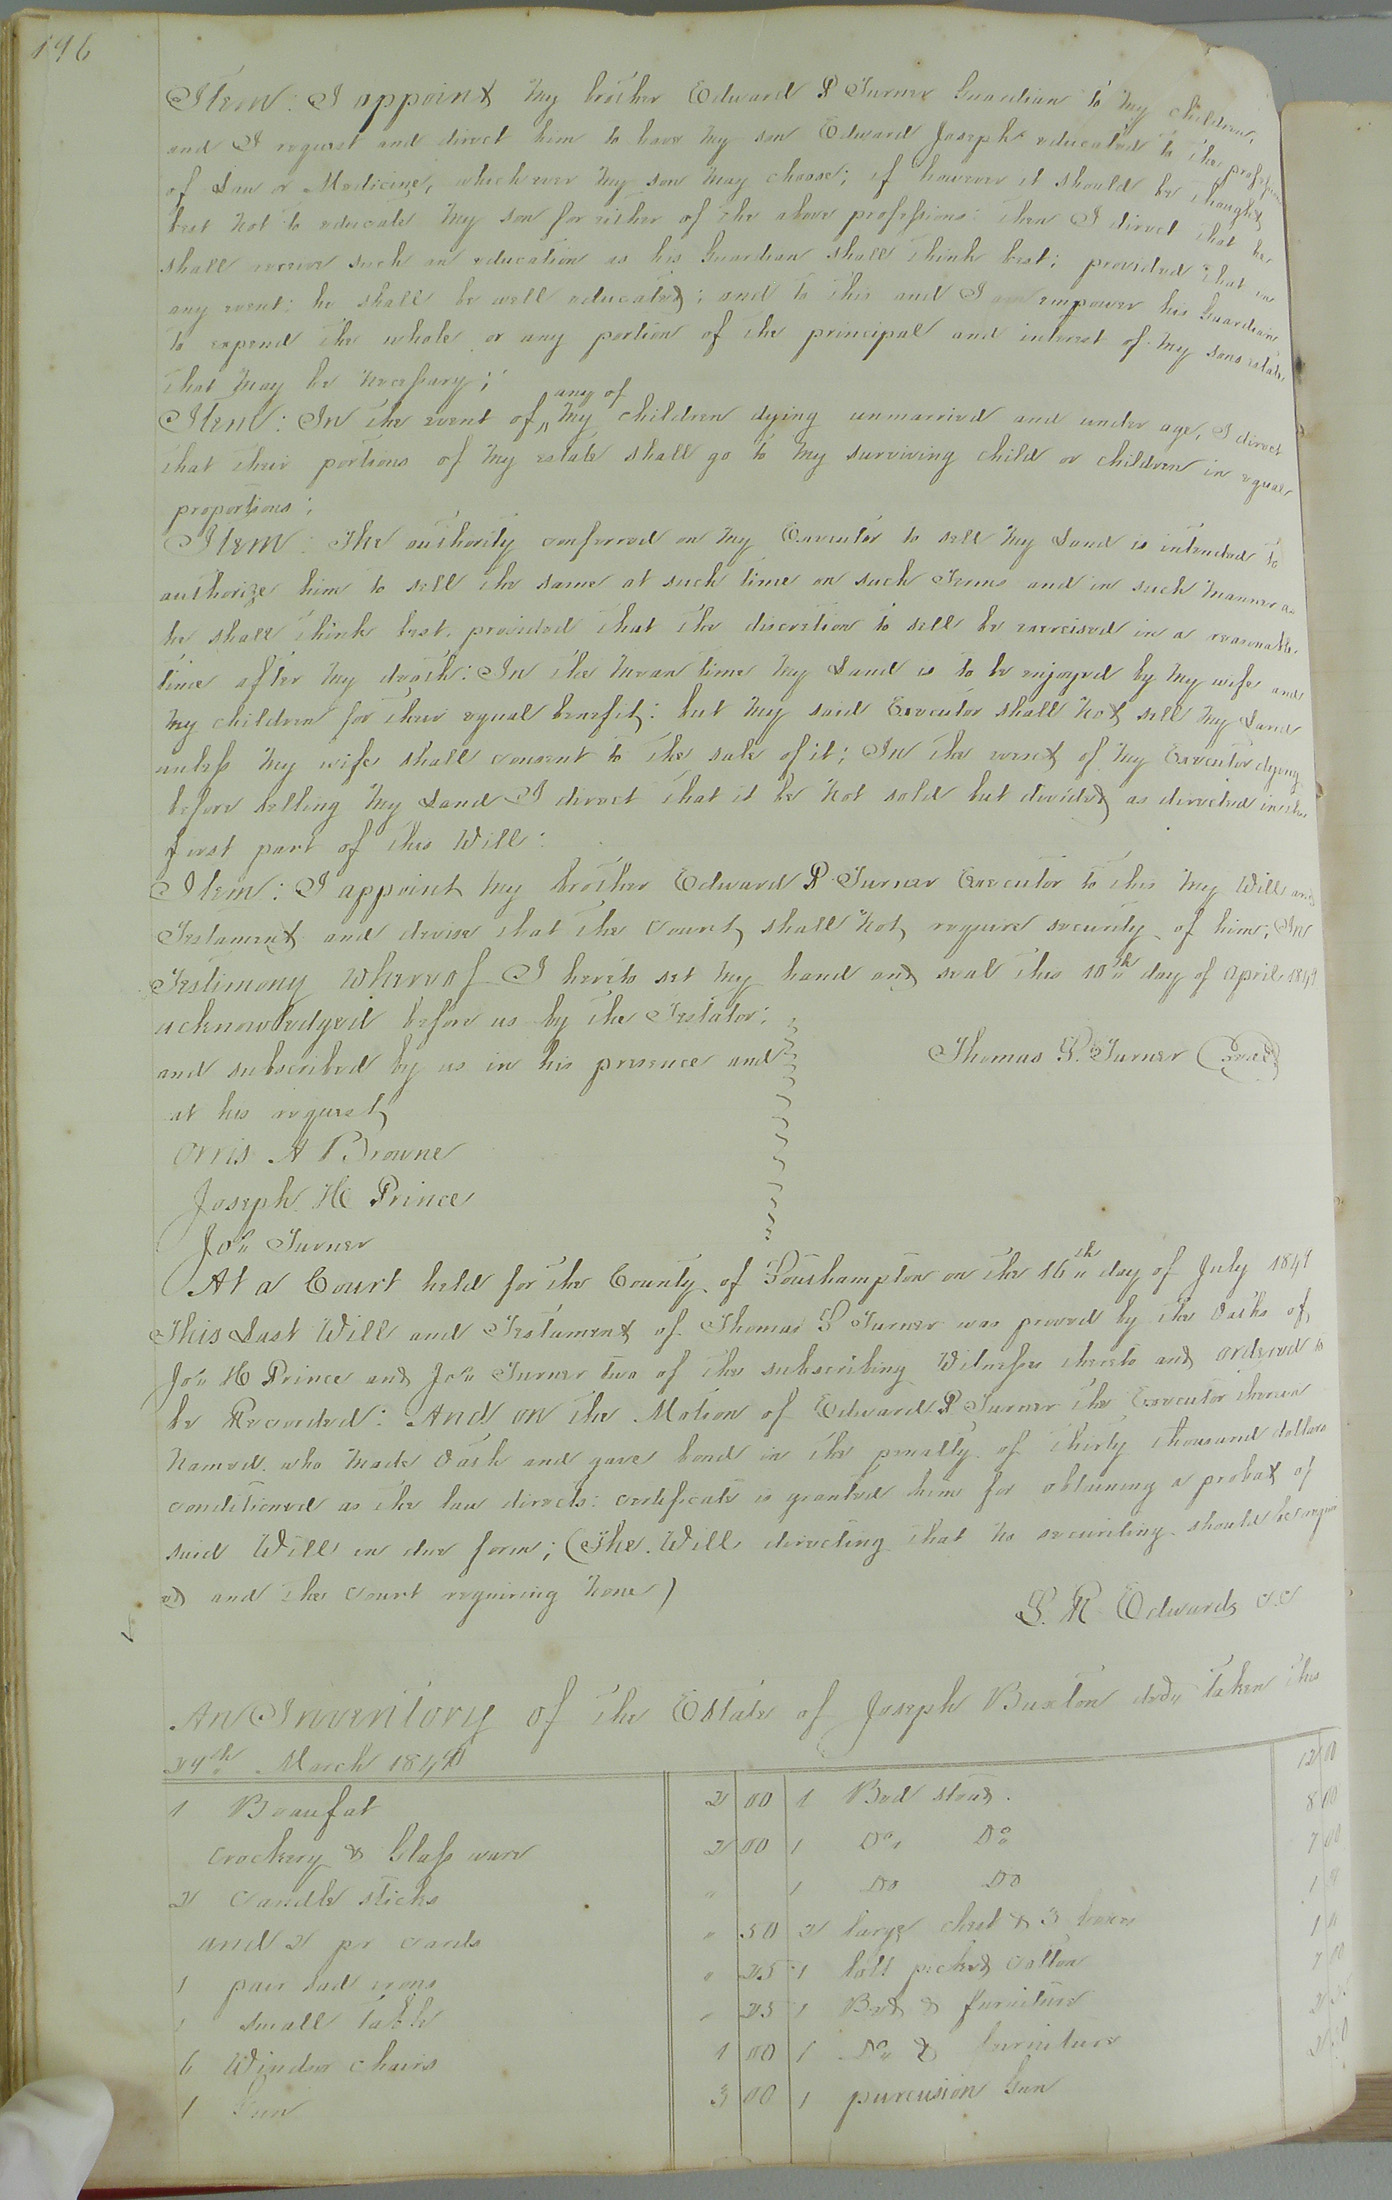 196
Item: I appoint my brother Edward P Turner Guardian to my children,
and I request and direct him to have my son Edward Joseph educated to the profession
of Law or Medicine, whichever my son may choose; if however it should be thought
best not to educate my son for either of the above professions: then I direct that he
shall receive such an education as his Guardian shall think best; provided that in
any event: he shall be well educated; and to this end I empower his Guardian
to expend the whole or any portion of the principal and interest of my sons estate
that may be necessary;
any of
Item: In the event of my children dying unmarried and under age, I direct
that their portions of my estate shall go to my surviving child or children in equal
proportions;
Item: The authority conferred on my Executor to sell my Land is intended to
authorize him to sell the same at such time on such Terms and in such manner as
he shall think best, provided that the discretion to sell be exercised in a reasonable
time after my death: In the mean time my Land is to be enjoyed by my wife and
my children for their equal benefit: but my said Executor shall not sell my Land
unless my wife shall consent to the sale of it; In the event of my Executor dying
before selling my Land I direct that it be not sold but divided as directed in the
first part of this Will:
Item: I appoint my brother Edward P. Turner Executor to this my Will and
Testament and devise that the court shall not require security of him; In
Testimony whereof I hereto set my hand and seal this 10th day of April 1849
acknowledged before us by the Testator;
and subscribed by us in his presence and
Thomas S. Turner (Seal)
at his request
Orris A Browne
Joseph H Prince
Jos Turner
At a Court held for the County of Southampton on the 16th day of July 1849
This Last Will and Testament of Thomas S Turner was proved by the Oaths of
Jos H Prince and Jos Turner two of the subscribing Witnesses thereto and ordered to
be Recorded: And on the Motion of Edward P Turner the Executor therein
named who made Oath and gave bond in the penalty of thirty thousand dollars
conditioned as the law directs: certificate is granted him for obtaining a probat of
said Will in due form; (The Will directing that no security should be requir
ed and the court requiring none)
L. R Edwards C.C
An Inventory of the Estate of Joseph Buxton decd taken this
March 1849
1 Beaufat 2 00 1 Bed stead. 12 00
Crockery & Glass ware 2 00 1 Do Do 8 00
2 Candle sticks " 1 Do Do 7 00
and 2 pr cards " 50 2 large chest & 3 1 "
1 pair sad irons " 25 1 lott picked cotton 1 "
1 small table " 25 1 Bed & furniture 7 00
6 Windsor chairs 1 00 1 Do & furniture
1 Gun 3 00 1 purcusion Gun